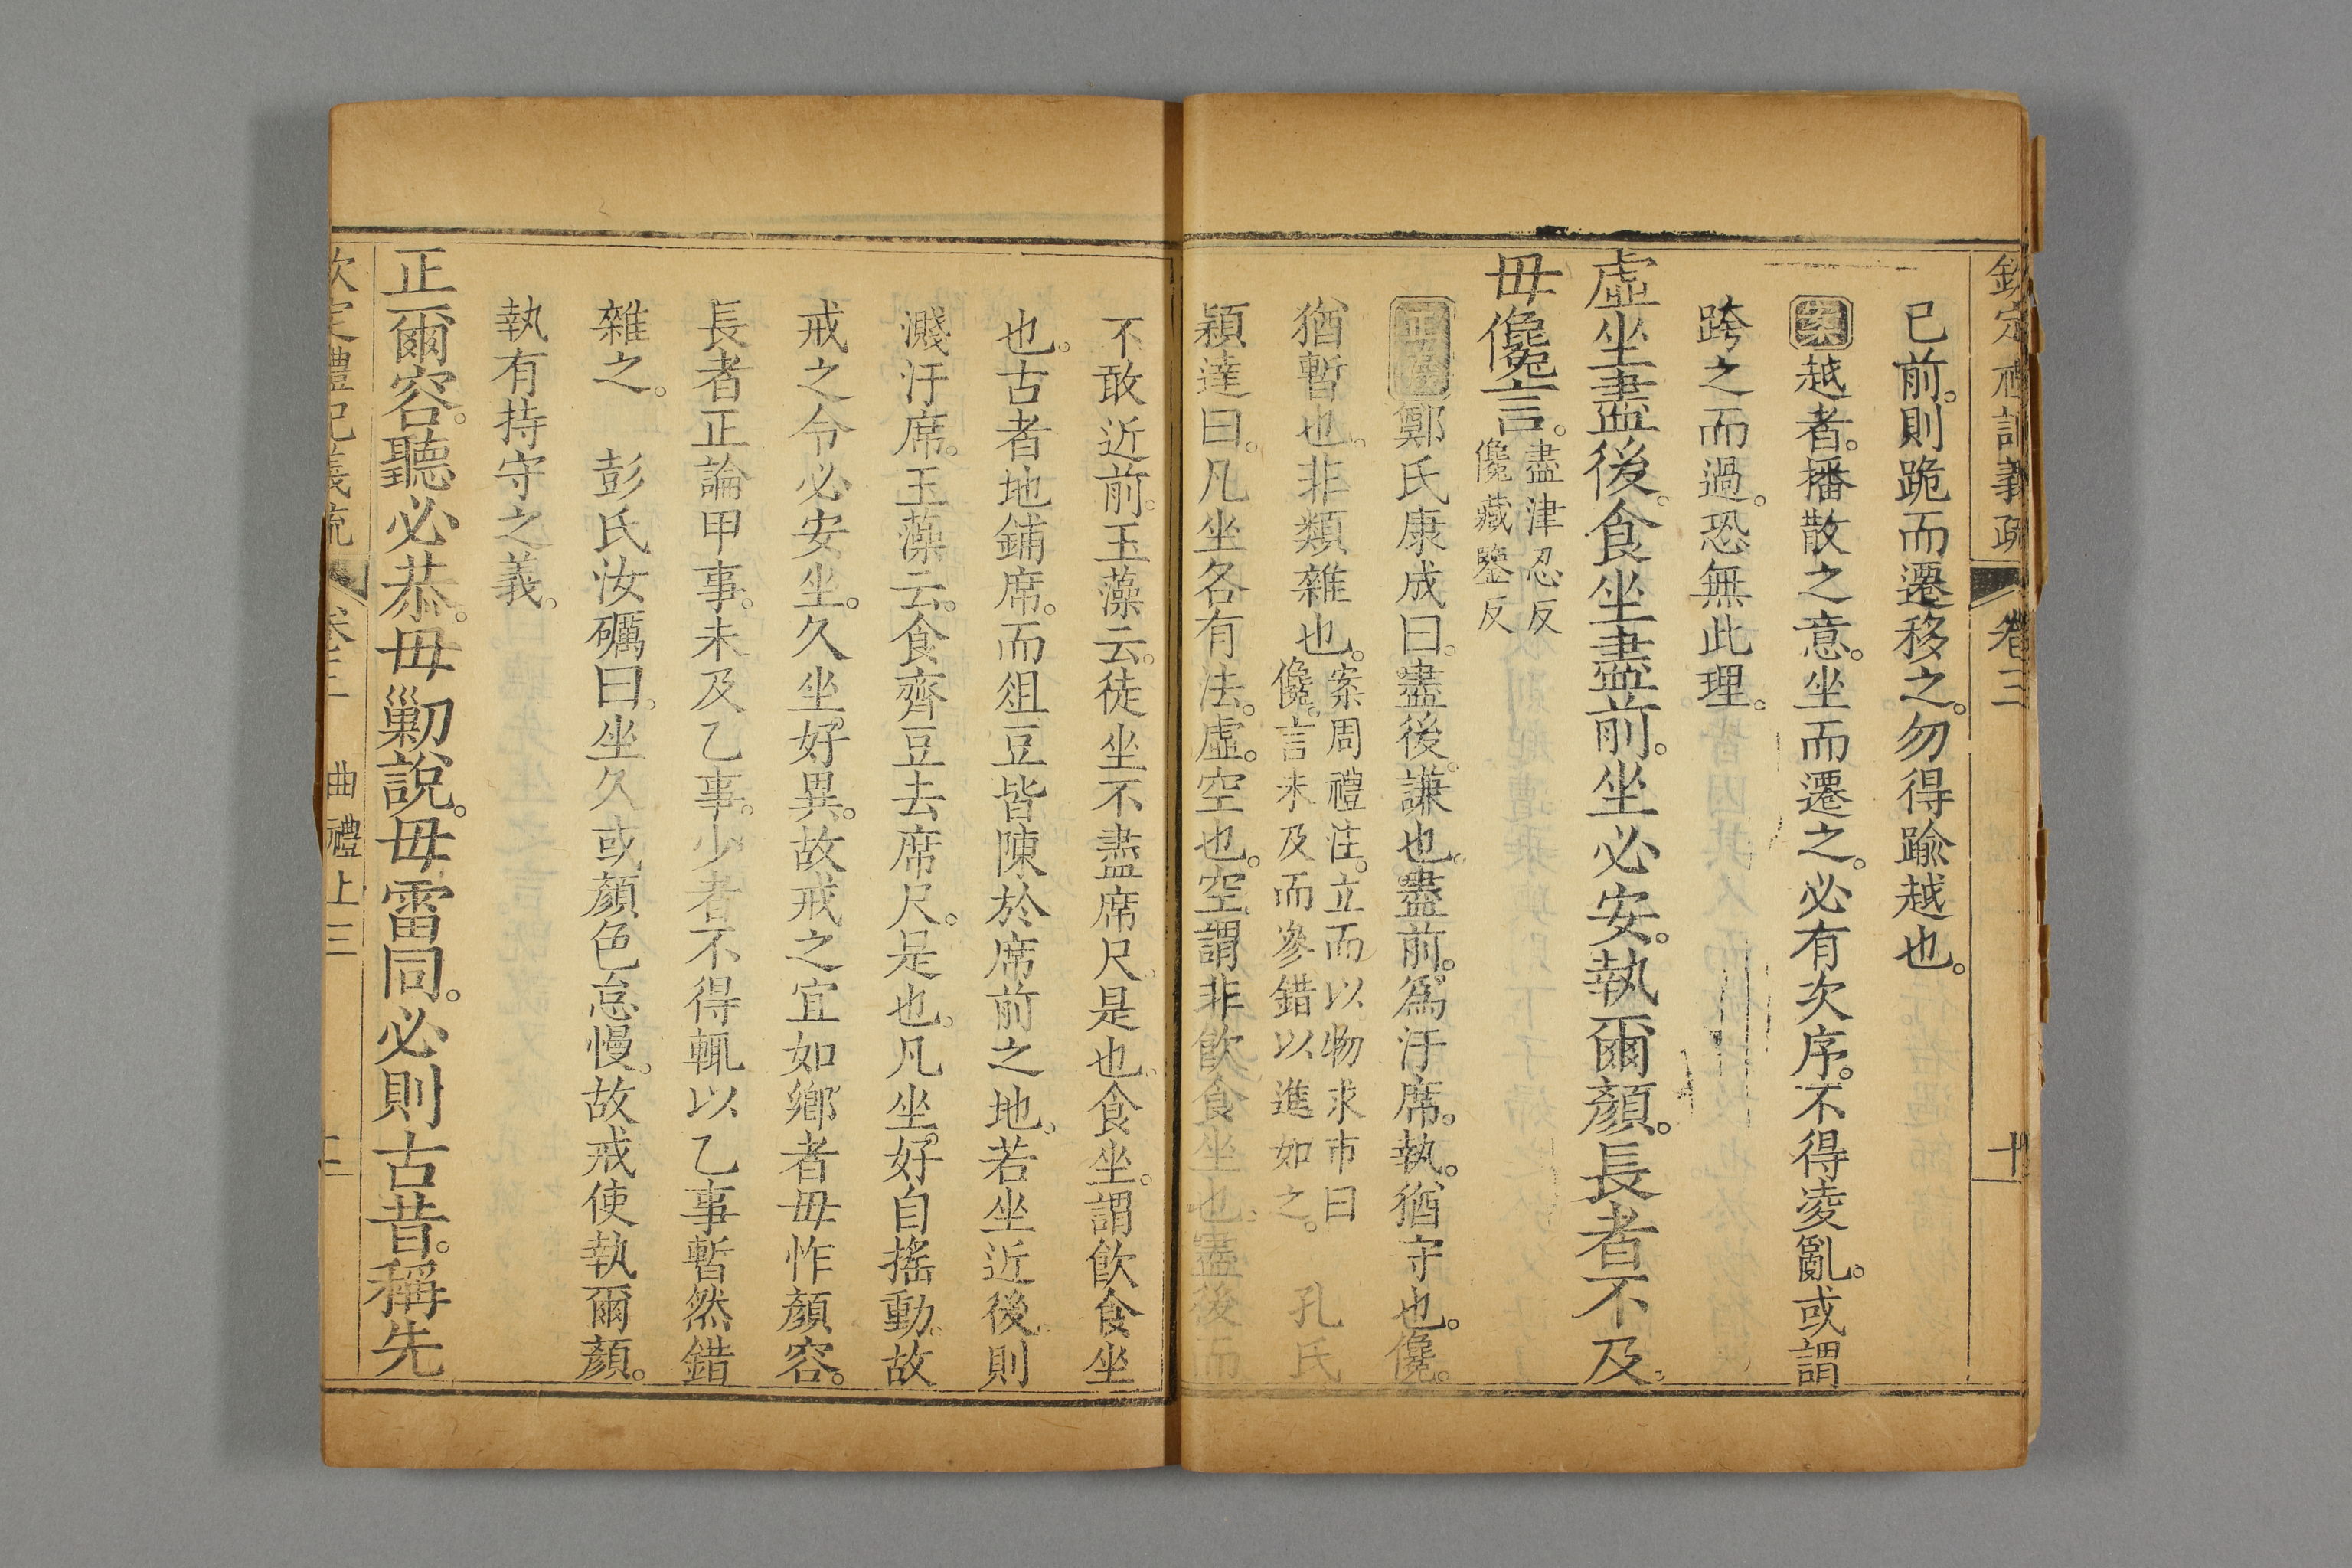 欽定禮記義疏 卷三 十
已前。則跪而遷移之。勿得踰越也。
案越者。播散之意。坐而遷之。必有次序。不得凌亂。或謂
跨之而過。恐無此理。
虛坐盡後。食坐盡前。坐必安。執爾顏。長者不及。
毋儳言。盡津忍反
儳藏鑒反
正義鄭氏康成曰。盡後。謙也。盡前。爲汙席。執。猶守也。儳。
猶暫也。非類雜也。案周禮注。立而以物求市曰
儳。言未及而參錯以進如之。 孔氏
穎達曰。凡坐各有法。虛。空也。空。謂非飲食坐也。盡後而
不敢近前。玉藻云。徒坐不盡席尺。是也。食坐。謂飲食坐
也。古者地鋪席。而俎豆皆陳於席前之地。若坐近後。則
濺汙席。玉藻云。食齊豆去席尺。是也。凡坐。好自搖動。故
戒之令必安坐。久坐。好異。故戒之宜如嚮者毋怍顏容。
長者正論甲事。未及乙事。少者不得輒以乙事暫然錯
雜之。 彭氏汝礪曰。坐久或顏色怠慢。故戒使執爾顏。
執有持守之義。
正爾容。聽必恭。毋勦說。毋雷同。必則古昔。稱先
欽定禮記義疏 卷三 曲禮上三